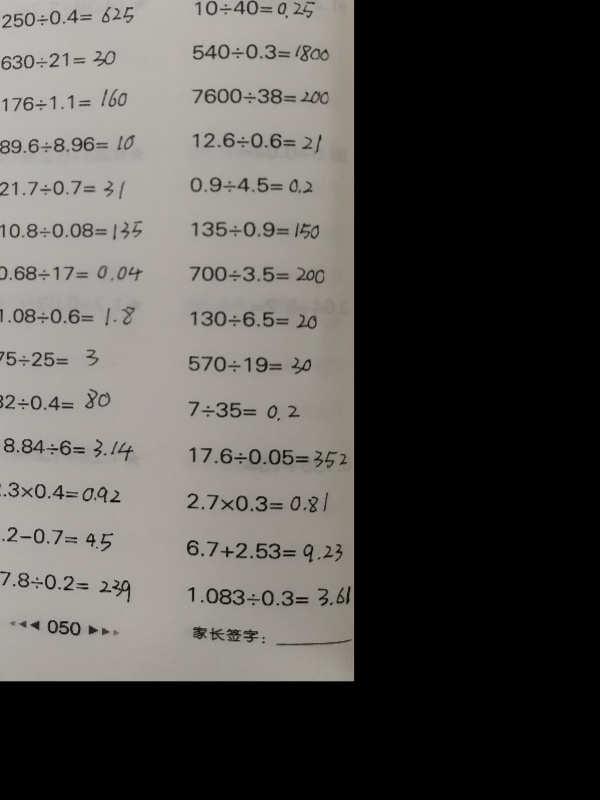 250÷0.4= 625
630÷21= 30
176÷1.1= 160
89.6÷8.96= 10
21.7÷0.7= 31
10.8÷0.08= 135
0.68÷17= 0.04
1.08÷0.6= 1.8
75÷25= 3
32÷0.4= 80
8.84÷6= 3.14
.3×0.4= 0.92
.2−0.7= 4.5
7.8÷0.2= 239
050
10÷40= 0.25
540÷0.3= 1800
7600÷38= 200
12.6÷0.6= 21
0.9÷4.5= 0.2
135÷0.9= 150
700÷3.5= 200
130÷6.5= 20
570÷19= 30
7÷35= 0.2
17.6÷0.05= 352
2.7×0.3= 0.81
6.7+2.53= 9.23
1.083÷0.3= 3.61
家长签字：